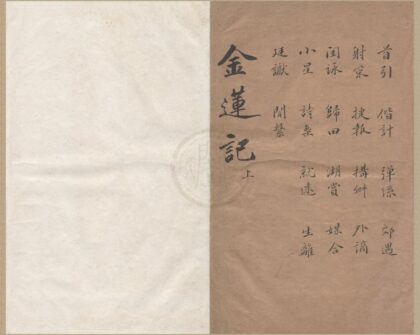 首引 偕計 彈絲 郊遇
射策 捷報 搆衅 外謫
閨詠 歸田 湖賞 媒合
小星 詩案 就逮 生離
廷讞
金蓮記 上